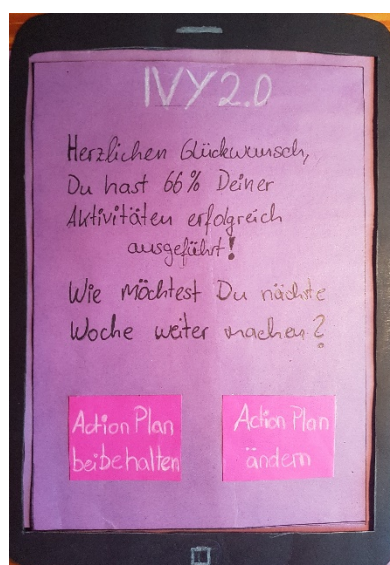 IVY 2.0
Herzlichen Glückwunsch,
Du hast 66% Deiner
Aktivitäten erfolgreich
ausgeführt!
Wie möchtest Du nächste
Woche weiter machen?
Action Plan
beibehalten
Action Plan
ändern